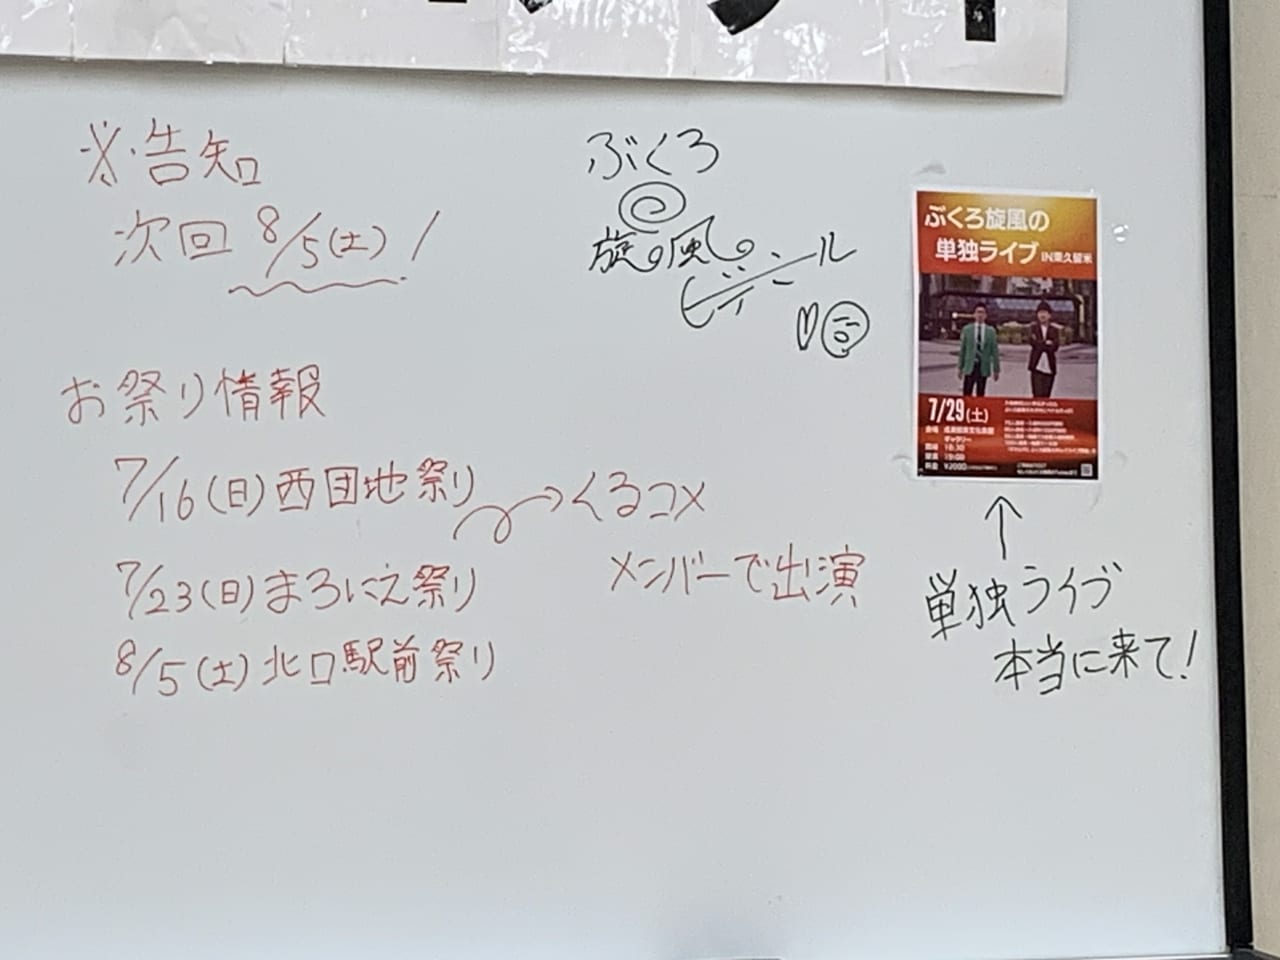 ※告知
次回 8/5(土)!
お祭り情報
7/16(日)西団地祭り
7/23(日)まろにえ祭り
8/5(土)北口駅前祭り
くるコメ
メンバーで出演
ぶくろ
旋風
ル
ぶくろ旋風の
単独ライブ IN東久留米
7/29(土)
ギャラリー
18:30
19:00
¥2000
↑
単独ライブ
本当に来て!